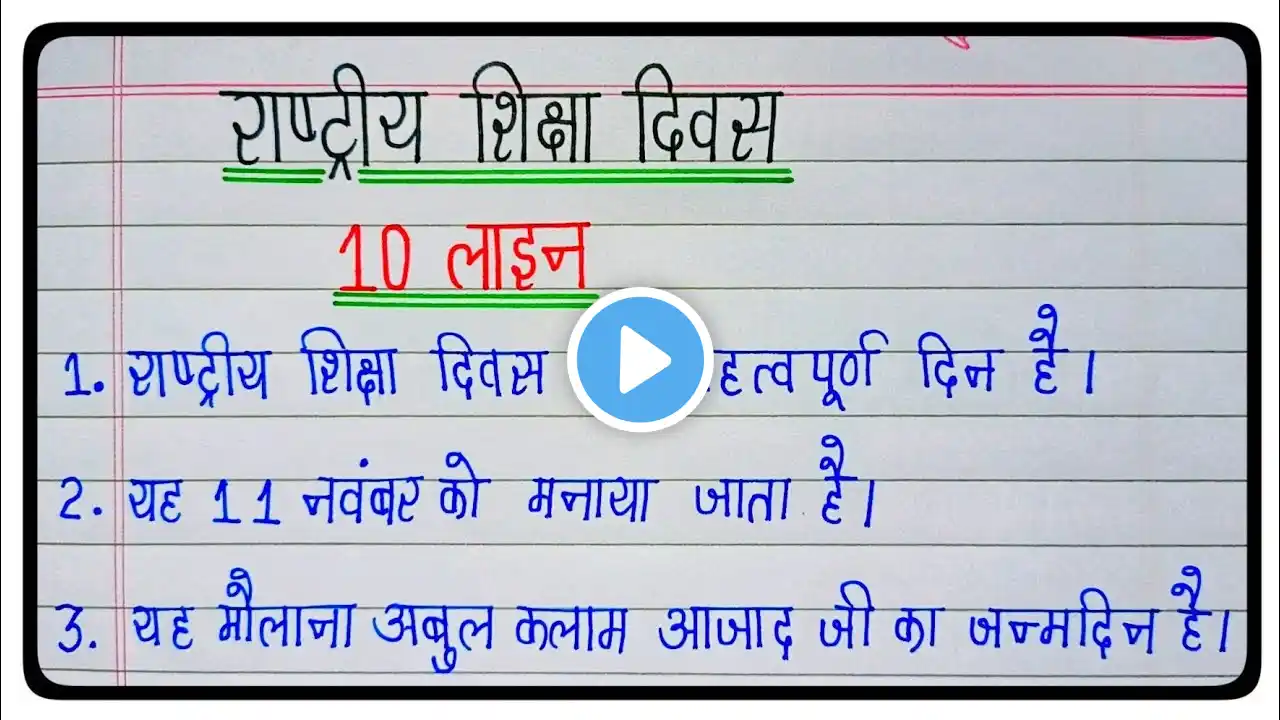 राष्ट्रीय शिक्षा दिवस
10 लाइन
1. राष्ट्रीय शिक्षा दिवस दिन है।
2. यह 11 नवंबर को मनाया जाता है।
3. यह मौलाना अबुल कलाम आजाद जी का जन्मदिन है।